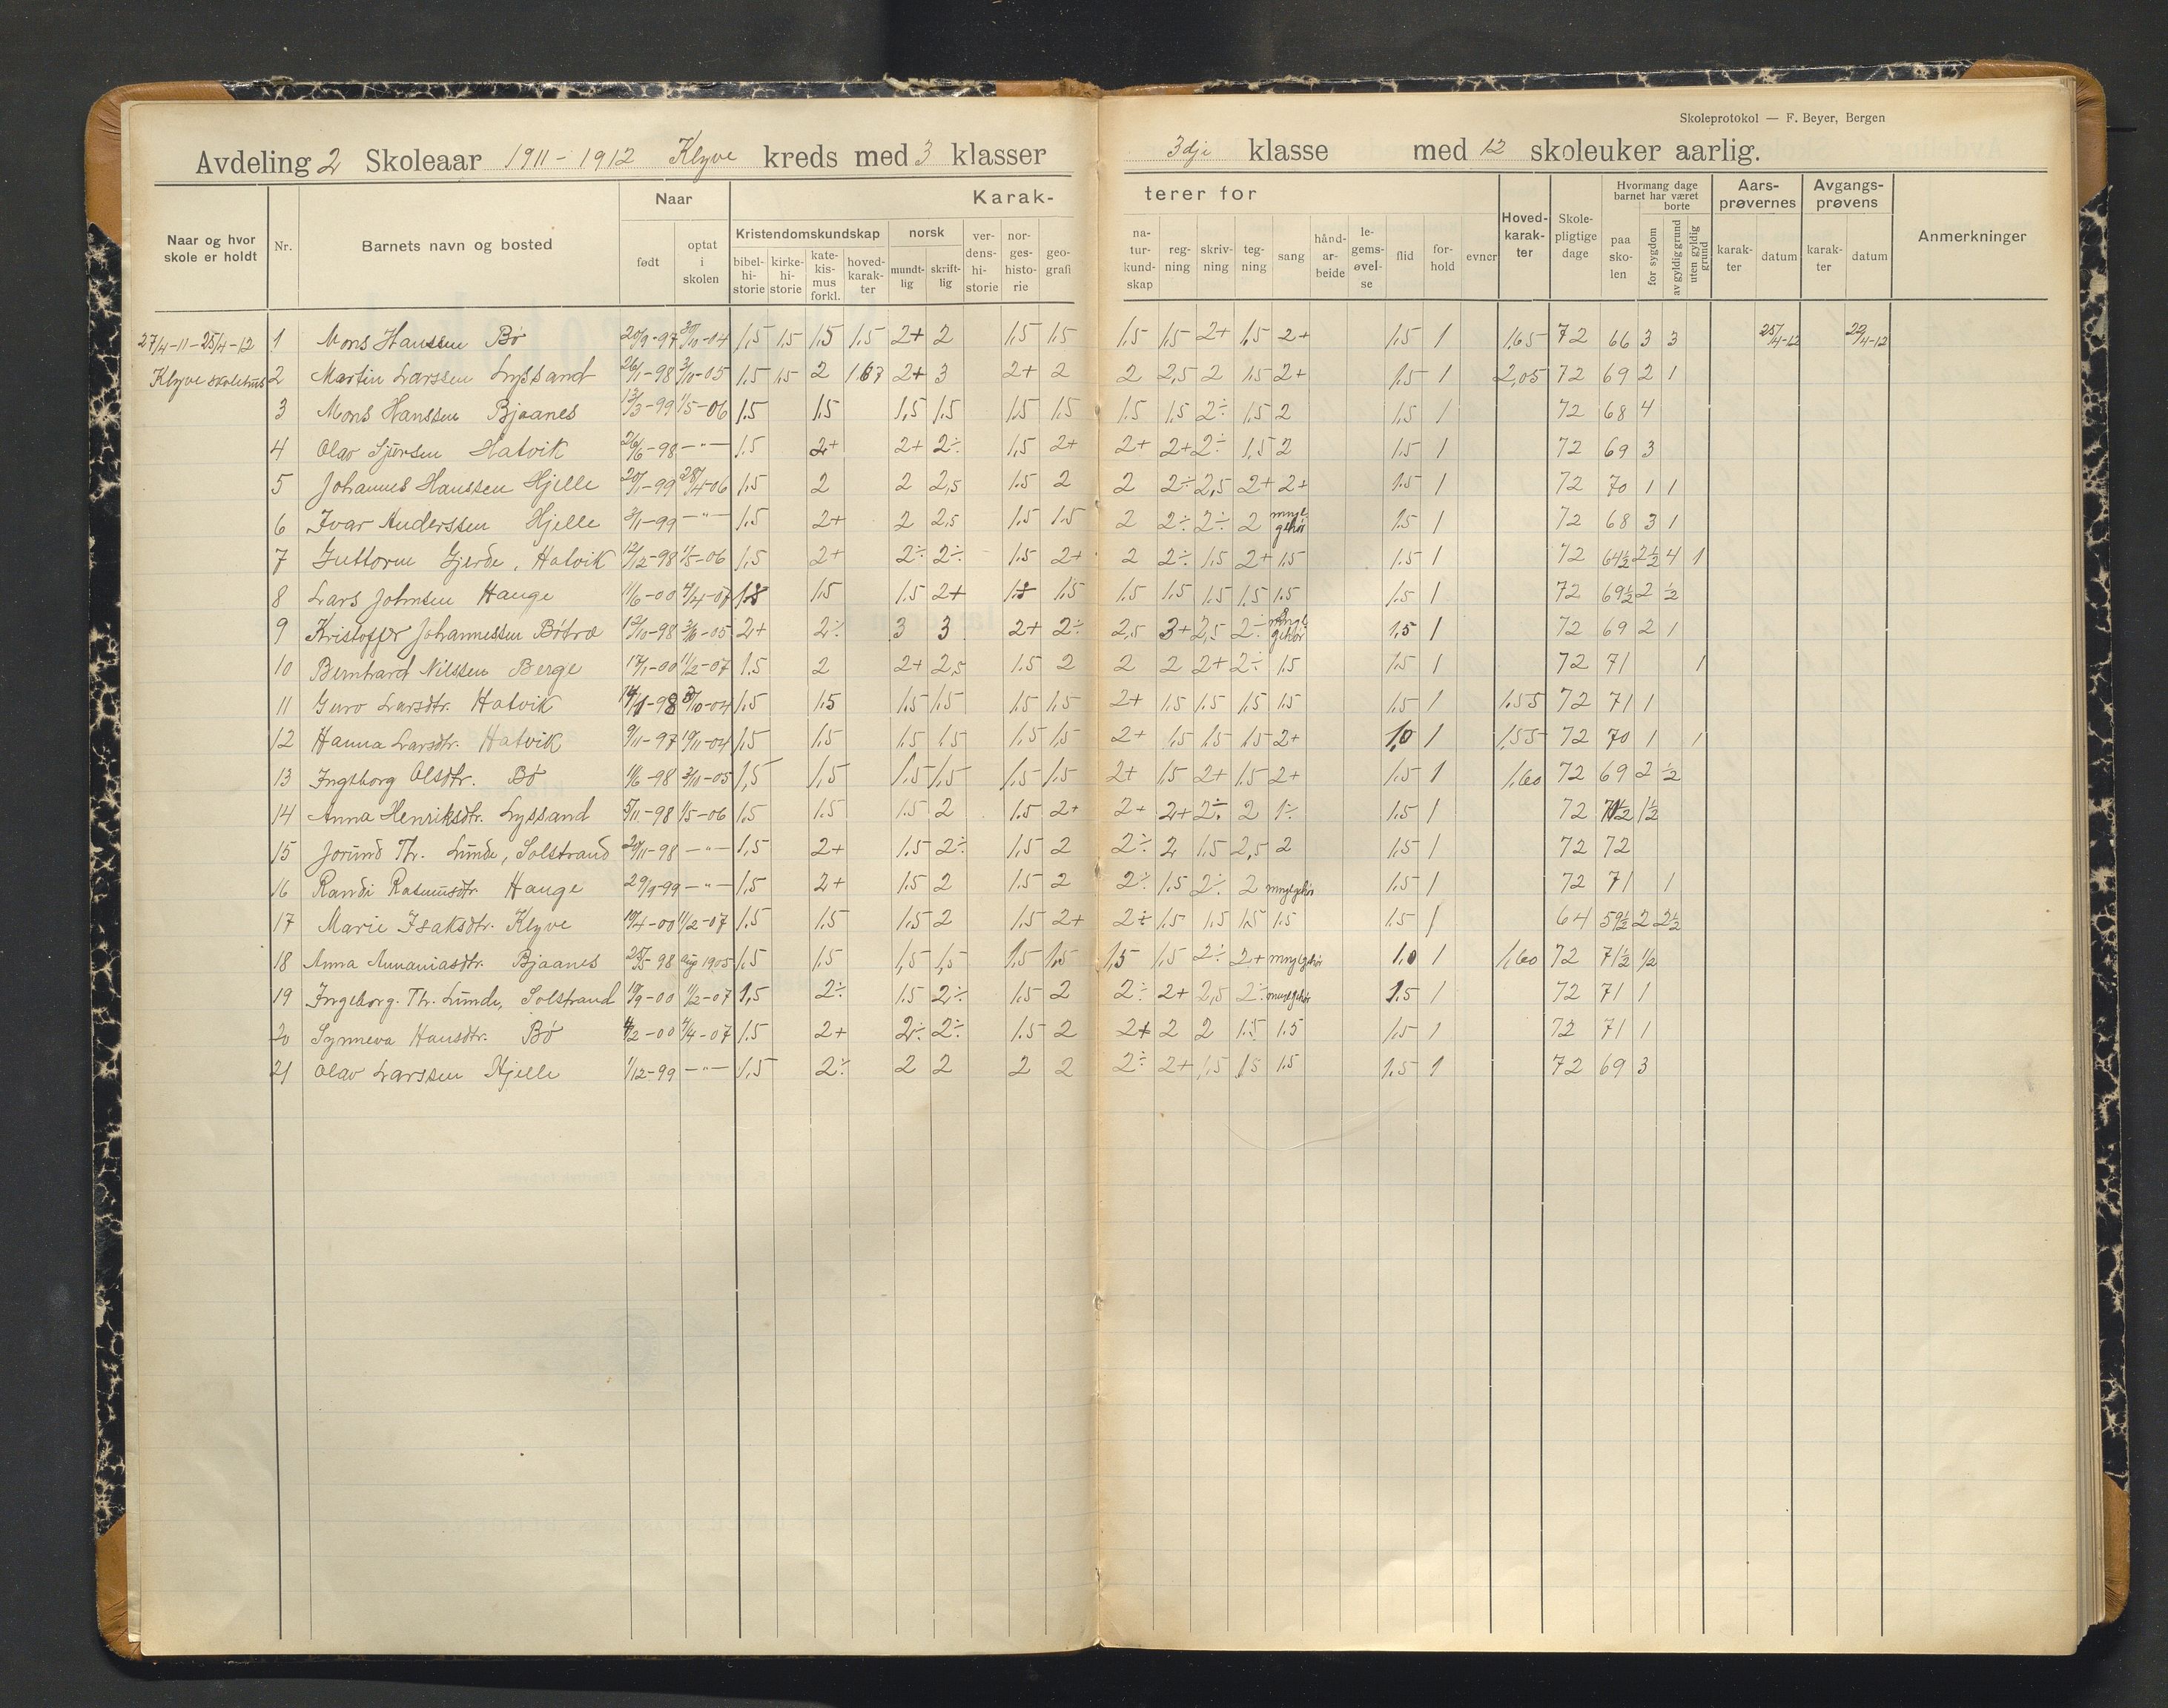 Skoleprotokol — F. Beyer, Bergen
Avdeling 2 Skoleaar 1911-1912 Klyve kreds med 3 klasser 3dje klasse med 12 skoleuker aarlig.
Naar og hvor skole er holdt
Nr.
Barnets navn og bosted
Naar
født
optat i skolen
Karak-
Kristendomskundskap
bibel-hi-storie
kirke-hi-storie
kate-kis-mus forkl.
hoved-karak-ter
norsk
mundt-lig
skrift-lig
ver-dens-hi-storie
nor-ges-histo-rie
geo-grafi
terer for
na-tur-kund-skap
reg-ning
skriv-ning
teg-ning
sang
hånd-ar-beide
le-gems-øvel-se
flid
for-hold
evner
Hoved-karak-ter
Skole-pligtige dage
Hvormang dage barnet har været
paa sko-len
borte
for sygdom
av gyldig grund
uten gyldig grund
Aars-prøvernes
karak-ter
datum
Avgangs-prøvens
karak-ter
datum
Anmerkninger
27/4-11-25/4-12 1 Mons Hanssen Bø 20/9-97 30/10-04 1.5 1.5 1.5 1.5 2+ 2 1.5 1.5 1.5 1.5 2+ 1.5 2+ 1.5 1 1.65 72 66 3 3 25/4-12 22/4-12
Klyve skolehus 2 Martin Larssen Lyssand 26/1-98 3/10-05 1.5 1.5 2 1.67 2+ 3 2+ 2 2 2,5 2 1.5 2+ 1.5 1 2,05 72 69 2 1
3 Mons Hanssen Bjaanes 13/3-99 1/5-06 1.5 1.5 1.5 1.5 1.5 1.5 1.5 1.5 2÷ 1.5 2 1.5 1 72 68 4
4 Olav Sjursen Hatvik 26/6-98 -"- 1.5 2+ 2+ 2÷ 1.5 2+ 2+ 2+ 2÷ 1.5 2 1.5 1 72 69 3
5 Johannes Hanssen Hjelle 20/1-99 28/4-06 1.5 2 2 2,5 1.5 2 2 2÷ 2,5 2+ 2+ 1.5 1 72 70 1 1
6 Ivar Anderssen Hjelle 3/1-99 -"- 1.5 2+ 2 2,5 1.5 1.5 2 2÷ 2÷ 2 gehør 1.5 1 72 68 3 1
7 Guttorm Gjerde, Hatvik 12/12-98 1/5-06 1.5 2+ 2÷ 2÷ 1.5 2+ 2 2÷ 1.5 2+ 1.5 1.5 1 72 64½ 2½ 4 1
8 Lars Johnsen Hauge 11/6-00 7/4-07 1.5 1.5 2+ 1.5 1.5 1.5 1.5 1.5 1.5 1.5 1 72 69½ 2 ½
9 Kristoffer Johannessen Bøtræ 12/10-98 3/10-05 2+ 2÷ 3 3 2+ 2÷ 2,5 3+ 2,5 2÷ gehør 1,5 1 72 69 2 1
10 Bernhard Nilssen Berge 17/1-00 11/2-07 1.5 2 2+ 2,5 1.5 2 2 2 2+ 2÷ 1.5 1.5 1 72 71 1
11 Guro Larsdtr. Hatvik 1.5 1.5 1.5 1.5 1.5 1.5 2+ 1.5 1.5 1.5 1.5 1.5 1 1.55 72 71 1
12 Hanna Larsdtr. Hatvik 9/11-97 19/11-04 1.5 1.5 1.5 1.5 1.5 1,5 2+ 1.5 1.5 1.5 2+ 1,0 1 1.55 72 70 1 1
13 Ingeborg Olsdtr. Bø 11/6-98 3/10-05 1,5 1.5 1.5 1.5 1.5 1.5 2+ 1.5 2+ 1.5 2+ 1.5 1 1,60 72 69 2 ½
14 Anna Henriksdtr. Lyssand 5/11-98 1/5-06 1.5 1.5 1.5 2 1.5 2+ 2+ 2+ 2÷ 2 1÷ 1.5 1 72 1½
15 Jorund Th. Lunde, Solstrand 20/11-98 -"- 1.5 2+ 1.5 2÷ 1.5 2 2÷ 2 1.5 2,5 2 1.5 1 72 72
16 Randi Rasmusdtr. Hauge 29/9-99 -"- 1.5 2+ 1.5 2 1.5 2 2÷ 1.5 2÷ 2 1.5 1 72 71 1
17 Marie Isaksdtr. Klyve 19/4-00 11/2-07 1.5 1.5 1.5 2 1.5 2+ 2÷ 1.5 1.5 1.5 1.5 1.5 1 64 59½ 2 2½
18 Anna Annaniasdtr. Bjaanes 25/5-98 Aug 1905 1.5 1.5 1,5 1,5 1.5 1.5 1,5 1.5 2÷ 2+ 1.0 1 1,60 72 71½ ½
19 Ingeborg Th. Lunde, Solstrand 19/9-00 11/2-07 1,5 2÷ 1.5 2÷ 1.5 2 2÷ 2+ 2,5 2÷ 1.5 1 72 71 1
20 Synneva Hansdtr. Bø 4/2-00 7/4-07 1.5 2+ 2÷ 2÷ 1.5 2 2+ 2 2 1.5 1.5 1.5 1 72 71 1
21 Olav Larssen Hjelle 1/12-99 -"- 1.5 2÷ 2 2 2 2 2÷ 2+ 1.5 1.5 1.5 1.5 1 72 69 3